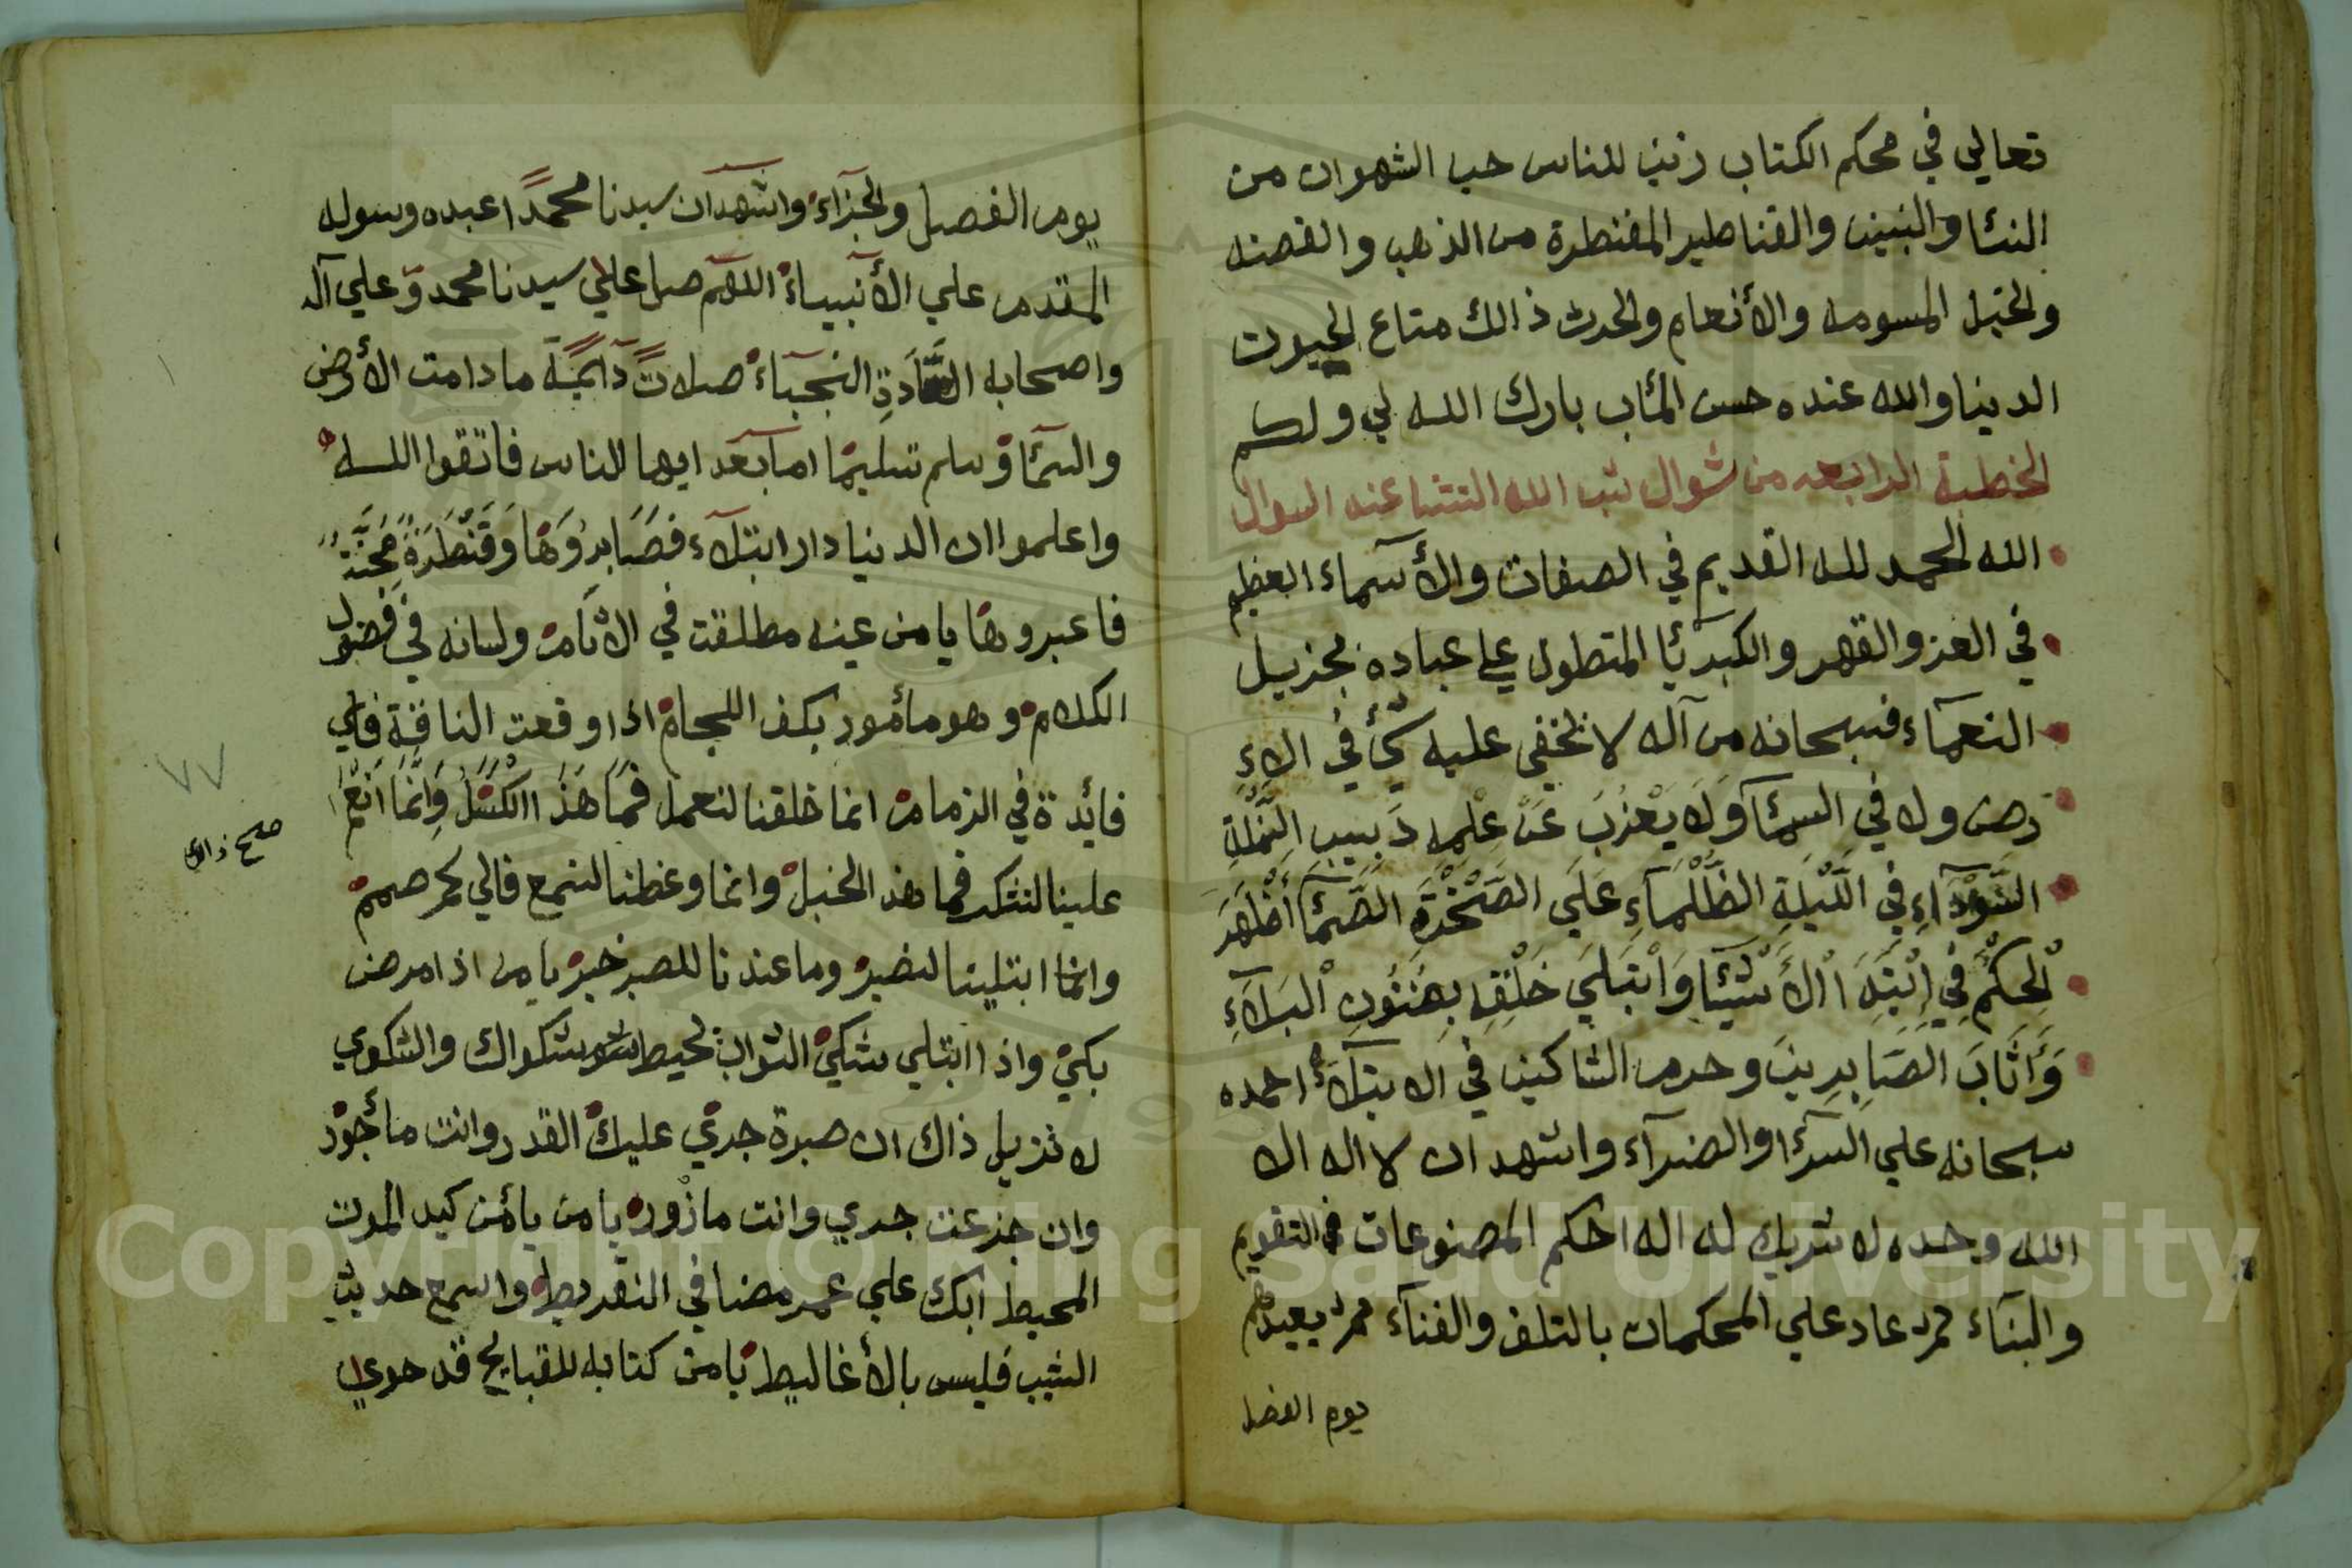 تعالي في محكم الكتاب زين للناس حب الشهوات من
النسا والبنين والقناطير المقنطرة من الذهب والفضه
والخيل المسومه والأنعام والحرث ذالك متاع الحيوت
الدينا والله عنده حسن المئاب بارك الله لي ولكم
الخطبة الرابعه من شوال تب الله عنه السوال
الله الحمد لله القديم في الصفات والأسماء العظيم
في العز والقهر والكبريا المتطول علي عباده بجزيل
النعماء فسبحانه من آله لا تخفي عليه في الا
رض ولا في السمآ وَلَا يَعْزُبَ عَنْ عِلْمِهِ دَبِيبِ النَّمْلَةِ
السَّوْدَآءِ في اللَّيْلَةِ الظَّلْمَآءِ عَلَي الصَّخْرَةِ الصَّمَّآ أَظْهَرَ
الْحِكَمْ فِي اِبْتِدَا اْلأَشْيَآ وَابْتَلَيَ خَلْقِهِ بِفُنُونِ اْلبَلَآءِ
وَأَثَابَ الصَّابِرِينَ وحرم الشاكين في الابتلآء احمده
سبحانه علي السرآ والضرآء واشهد ان لا اله الا
الله وحده لا شريك له اله احكم المصنوعات في التقويم
والبنآء ثم عاد علي المحكمات بالتلف والفنآء ثم يعيدهم
يوم الفصل
يوم الفصل والجزآء واشهد ان سيدنا محمدًا عبده وسوله
المقدم علي الأنبيآء اللهم صل علي سيدنا محمد وعلي آله
واصحابه السَّادَةِ النجبآء صلاتً دآيمةً ما دامت الأرض
والسمآ وسلم تسليمًا اما بعد ايها الناس فاتقوا الله
واعلموا ان الدينا دار ابتلآء فصَابِرُوَهَا وَقَنْطَرَةٌ مِحَنَّةٌ
فاعبروها يا من عينه مطلقت في الاثام ولسانه في فضول
الكلام وهو مأمور بكف اللجام اذا وقعت الناقة فاي
فايدة في الزمام انما خلقنا لنعمل فَمَا هَذَا الْكَسَلُ وَاِنَّمَا اَنْعَمَ
علينا لنشكر فما هذا الخبل وانما وعظنا لنسمع فالي كم صمم
وانما ابتلينا لنصبر وما عندنا للصبر خبر يا من اذا مرض
بكي واذا ابتلي شكي الثواب تحيط شكواك والشكوي
لا تزيل ذاك ان صبرة جري عليك القدر وانت مأجور
وان جزعت جري وانت مازور يا من يأمن كيد الموت
المحيط ابك علي عمر مضا في التفريط واسمع حديث
الشيب فليس بالأغاليط يا من كتابه للقبايح قد حوي
٧٧
صح